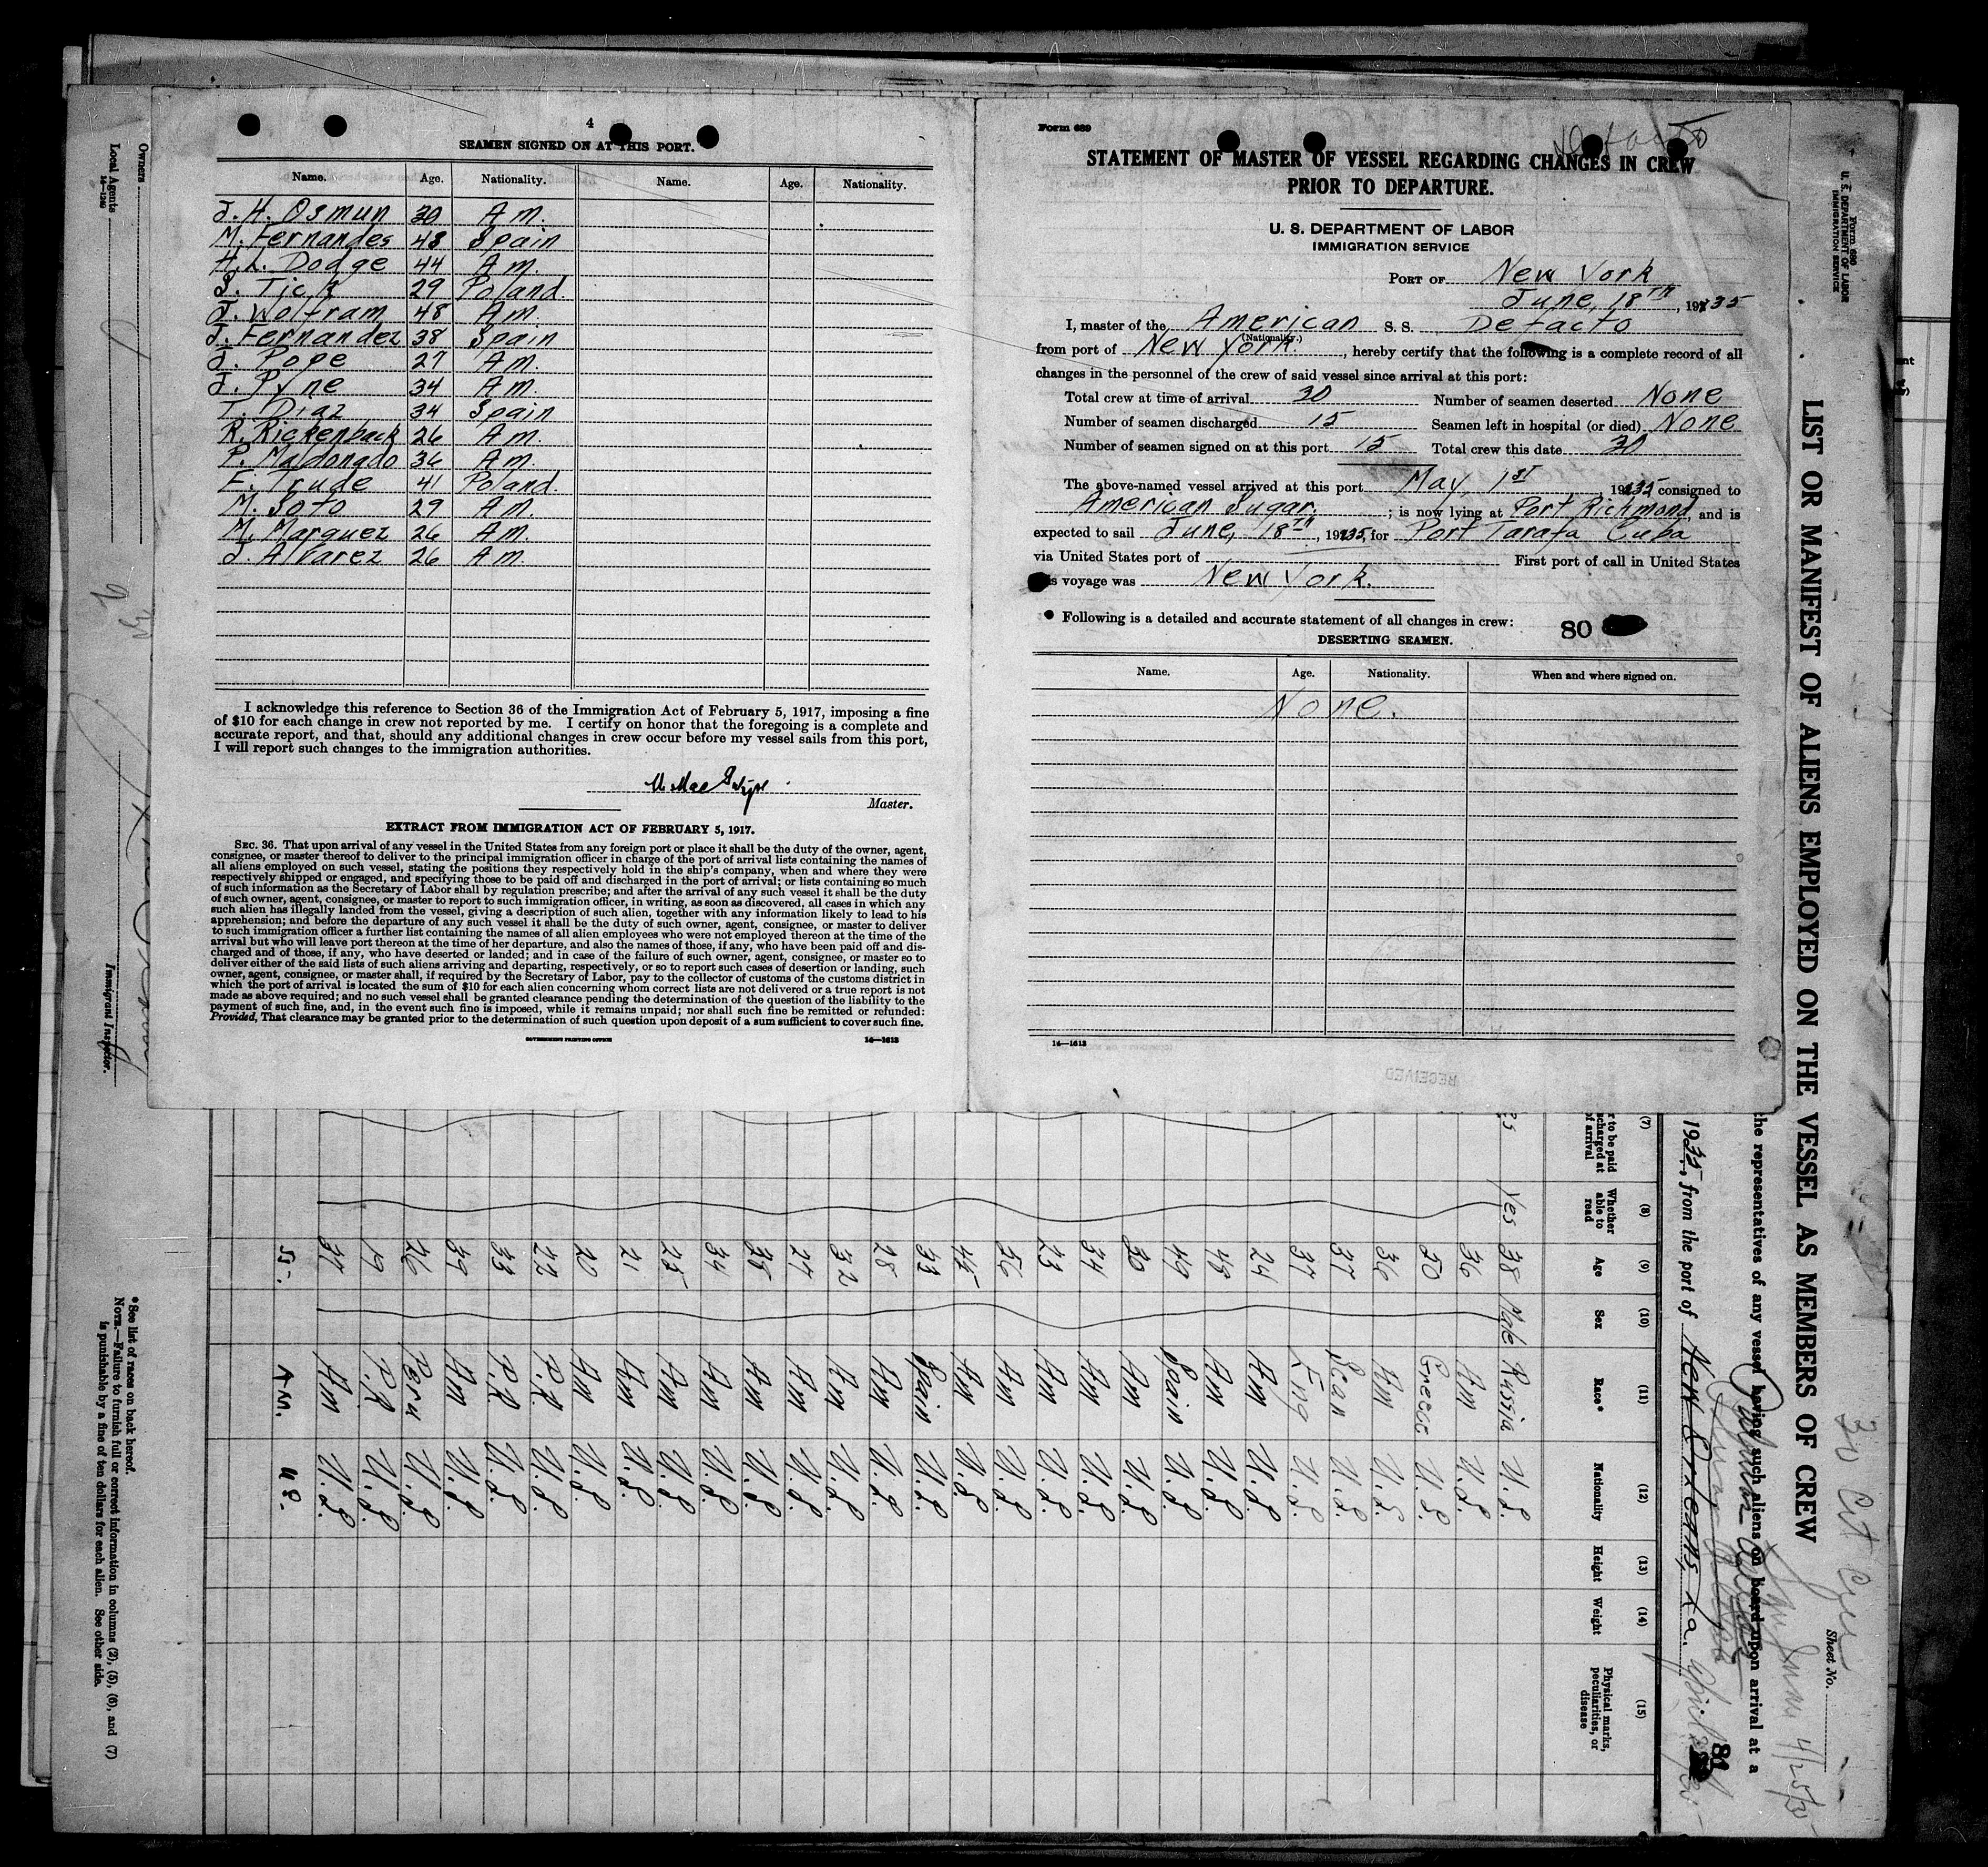 4
SEAMEN SIGNED ON AT THIS PORT.
Name. Age. Nationality. Name. Age. Nationality.
J. H. Osmun 30 Am.
M. Fernandes 48 Spain
H. L. Dodge 44 Am.
S. Tick 29 Poland.
J. Wolfram 48 Am.
J. Fernandez 38 Spain
J. Pope 27 Am.
J. Pyne 34 Am.
T. Diaz 34 Spain
R. Rickenback 26 Am.
P. Maldonado 36 Am.
E. Trude 41 Poland.
M. Soto 29 Am.
M. Marquez 26 Am.
J. Alvarez 26 Am.
I acknowledge this reference to Section 36 of the Immigration Act of February 5, 1917, imposing a fine
of $10 for each change in crew not reported by me. I certify on honor that the foregoing is a complete and
accurate report, and that, should any additional changes in crew occur before my vessel sails from this port,
I will report such changes to the immigration authorities.
Master.
EXTRACT FROM IMMIGRATION ACT OF FEBRUARY 5, 1917.
SEC. 36. That upon arrival of any vessel in the United States from any foreign port or place it shall be the duty of the owner, agent,
consignee, or master thereof to deliver to the principal immigration officer in charge of the port of arrival lists containing the names of
all aliens employed on such vessel, stating the positions they respectively hold in the ship's company, when and where they were
respectively shipped or engaged, and specifying those to be paid off and discharged in the port of arrival; or lists containing so much
of such information as the Secretary of Labor shall by regulation prescribe; and after the arrival of any such vessel it shall be the duty
of such owner, agent, consignee, or master to report to such immigration officer, in writing, as soon as discovered, all cases in which any
such alien has illegally landed from the vessel, giving a description of such alien, together with any information likely to lead to his
apprehension; and before the departure of any such vessel it shall be the duty of such owner, agent, consignee, or master to deliver
to such immigration officer a further list containing the names of all alien employees who were not employed thereon at the time of the
arrival but who will leave port thereon at the time of her departure, and also the names of those, if any, who have been paid off and dis-
charged and of those, if any, who have deserted or landed; and in case of the failure of such owner, agent, consignee, or master so to
deliver either of the said lists of such aliens arriving and departing, respectively, or so to report such cases of desertion or landing, such
owner, agent, consignee, or master shall, if required by the Secretary of Labor, pay to the collector of customs of the customs district in
which the port of arrival is located the sum of $10 for each alien concerning whom correct lists are not delivered or a true report is not
made as above required; and no such vessel shall be granted clearance pending the determination of the question of the liability to the
payment of such fine, and, in the event such fine is imposed, while it remains unpaid; nor shall such fine be remitted or refunded:
Provided, That clearance may be granted prior to the determination of such question upon deposit of a sum sufficient to cover such fine.
GOVERNMENT PRINTING OFFICE 14—1613
Form 689
STATEMENT OF MASTER OF VESSEL REGARDING CHANGES IN CREW
PRIOR TO DEPARTURE.
U. S. DEPARTMENT OF LABOR
IMMIGRATION SERVICE
PORT OF New York
June, 18TH, 1935
I, master of the American S. S. Defacto
(Nationality.)
from port of New York, hereby certify that the following is a complete record of all
changes in the personnel of the crew of said vessel since arrival at this port:
Total crew at time of arrival 30 Number of seamen deserted None
Number of seamen discharged 15 Seamen left in hospital (or died) None
Number of seamen signed on at this port 15 Total crew this date 30
The above-named vessel arrived at this port May, 1ST, 1935 consigned to
American Sugar. ; is now lying at Port Richmond, and is
expected to sail June, 18TH, 1935, for Port Tarafa Cuba
via United States port of First port of call in United States
voyage was New York.
Following is a detailed and accurate statement of all changes in crew: 80
DESERTING SEAMEN.
Name. Age. Nationality. When and where signed on.
None.
14—1613
RECEIVED
Form 680
U. S. DEPARTMENT OF LABOR
IMMIGRATION SERVICE
LIST OR MANIFEST OF ALIENS EMPLOYED ON THE VESSEL AS MEMBERS OF CREW
Sheet No.
the representatives of any vessel having such aliens on board upon arrival at a
1935, from the port of New Orleans, La.
81
(7) (8) (9) (10) (11) (12) (13) (14) (15)
to be paid
discharged at
of arrival
Whether able to read
Age
Sex
Race*
Nationality
Height
Weight
Physical marks, peculiarities, or disease
Yes 38 Male Russia U.S.
36 Am U.S.
50 Greece U.S.
36 Am U.S.
37 U.S.
37 Eng U.S.
24 Am U.S.
48 Am U.S.
49 Spain U.S.
30 Am U.S.
34 Am U.S.
23 Am U.S.
56 Am U.S.
45 Am U.S.
33 Spain U.S.
28 Am U.S.
32 Am U.S.
27 Am U.S.
38 Am U.S.
34 Am U.S.
25 Am U.S.
21 Am U.S.
20 Am U.S.
22 P.R. U.S.
33 P.R. U.S.
39 Am U.S.
26 Peru U.S.
19 P.R. U.S.
37 Am U.S.
Am. U.S.
Owners
Local Agents
14—1240
Immigrant Inspector.
*See list of races on back hereof.
NOTE.—Failure to furnish full or correct information in columns (2), (5), (6), and (7)
is punishable by a fine of ten dollars for each alien. See other side.